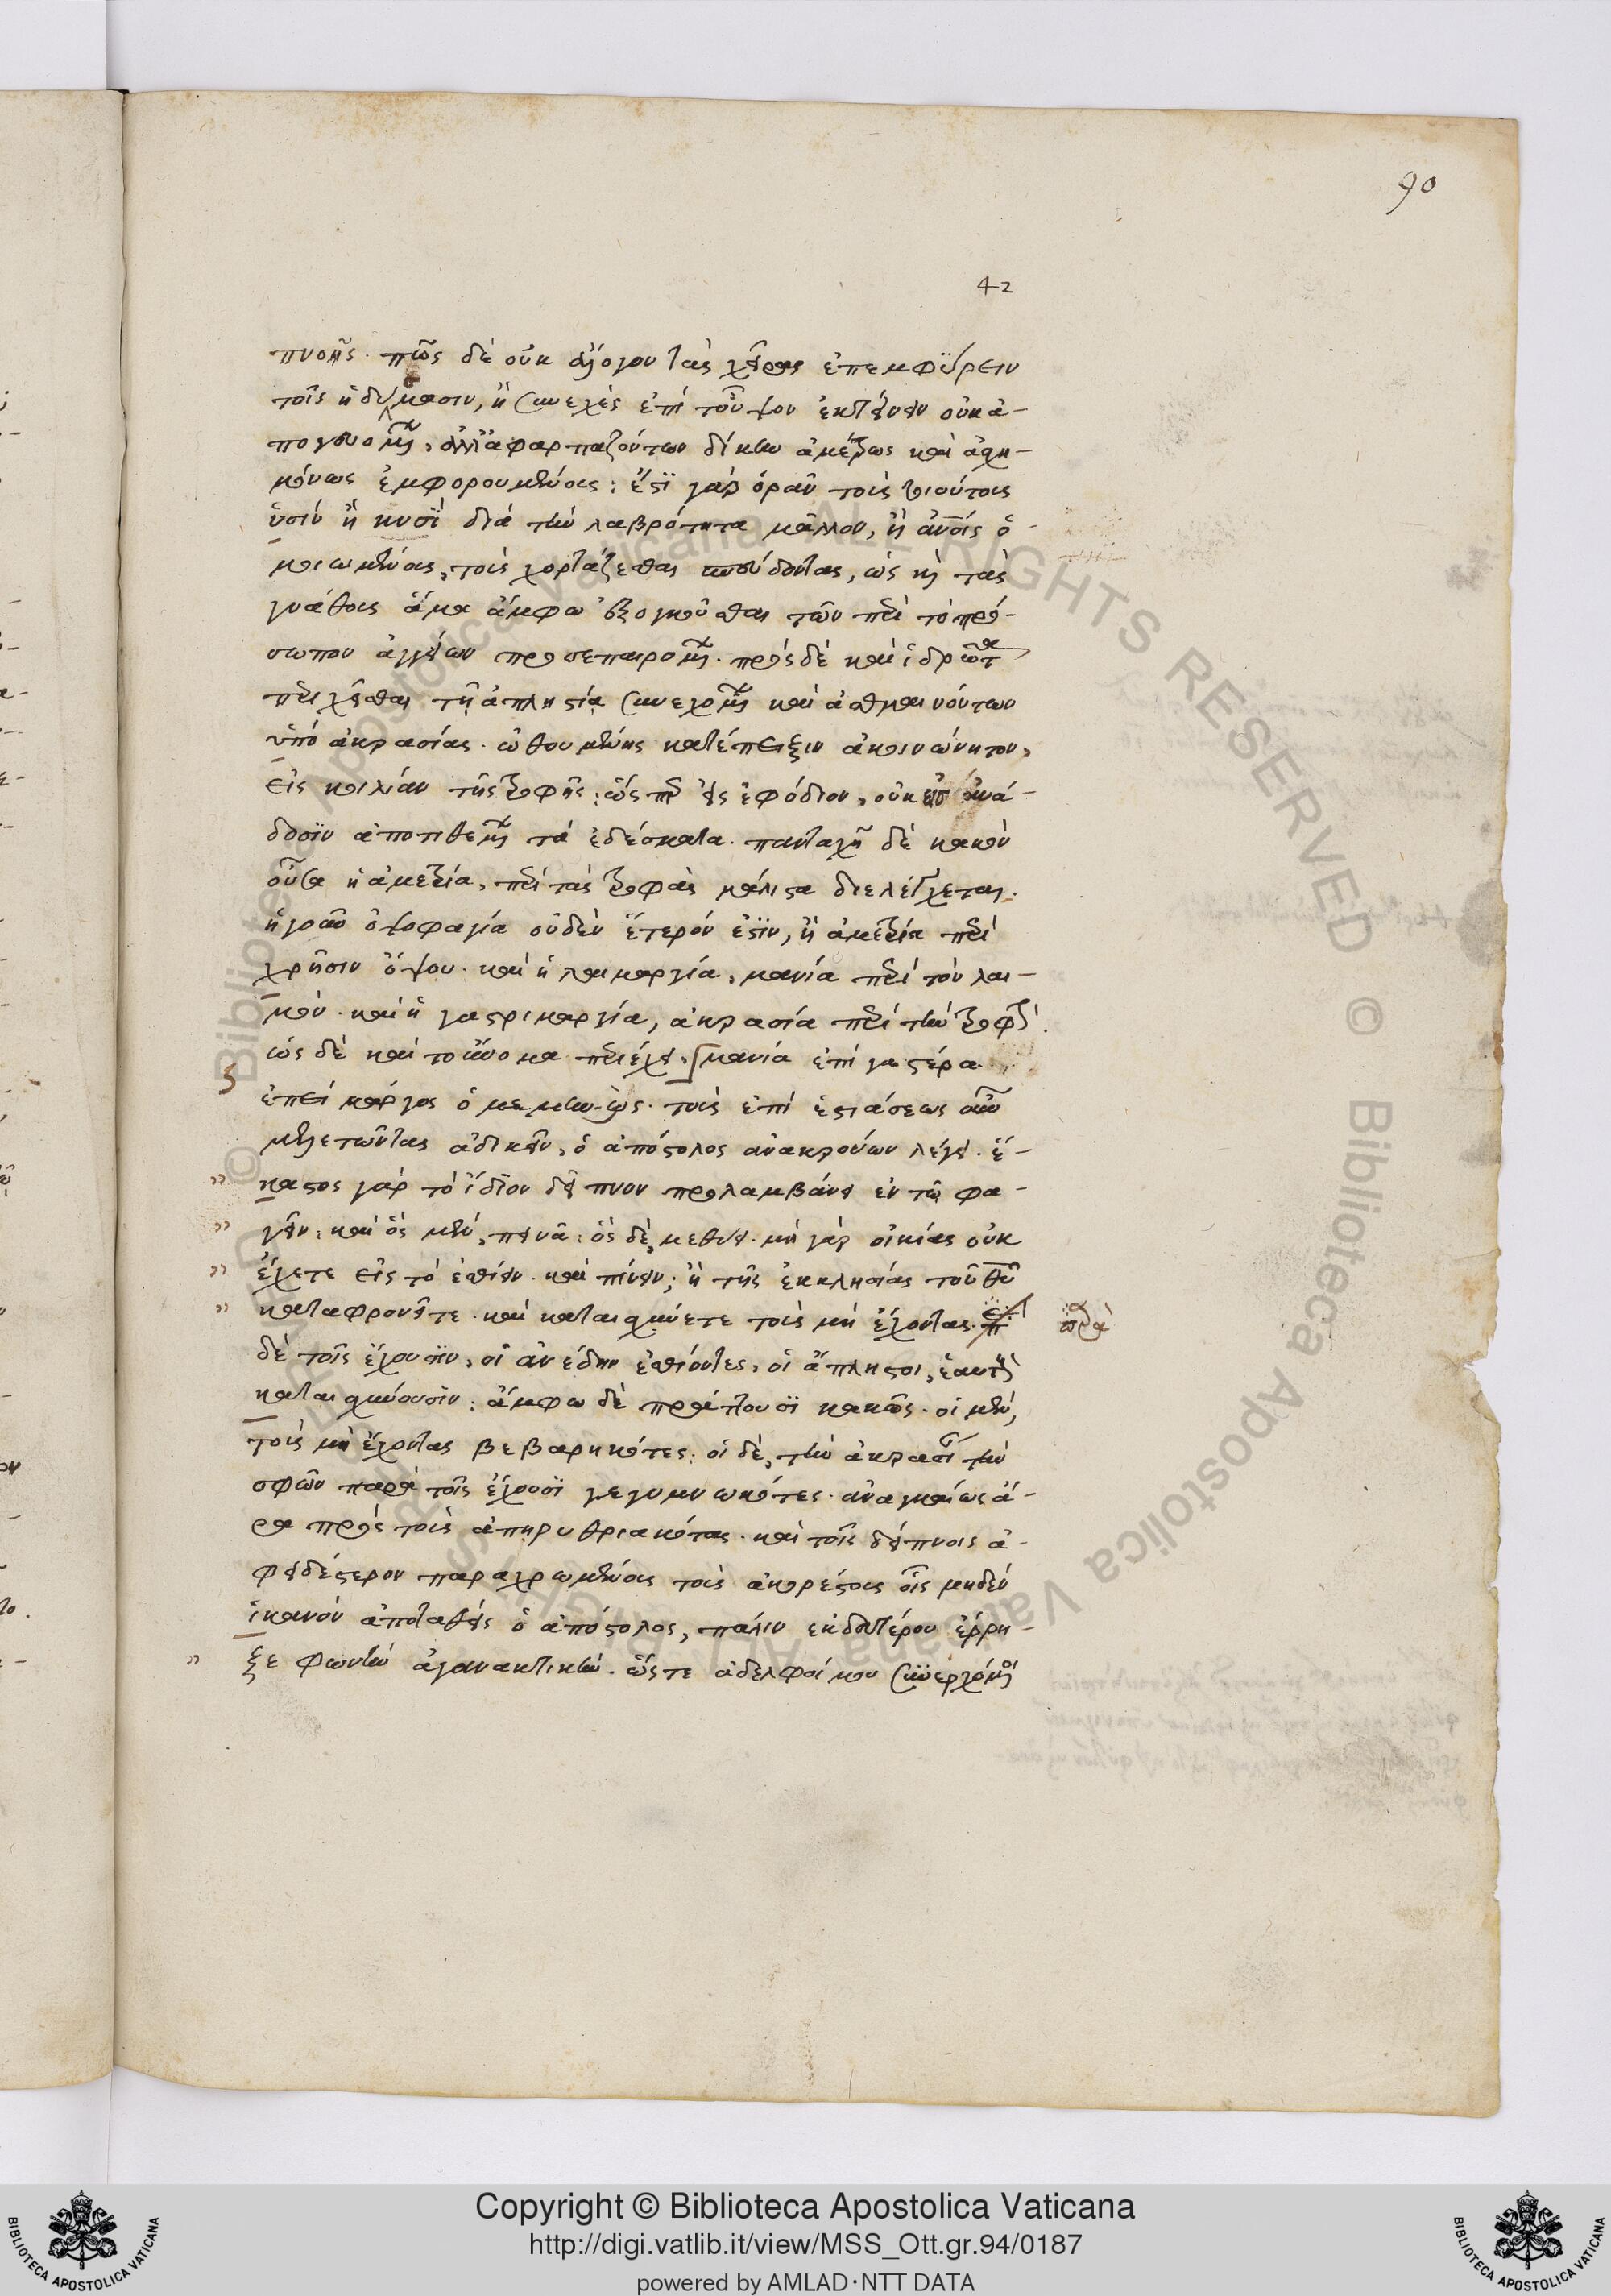 90
42
πνοῆς. πῶς δὲ οὐκ ἄλογον τὰς χεῖρας ἐπεμφύρειν
τοῖς ἡδύσμασιν, ἢ συνεχὲς ἐπὶ τοὖψον ἐκτείνειν οὐκ ἀ-
πογευομένων, ἀλλ' ἀφαρπαζόντων δίκην ἀμέτρως καὶ ἀσχη-
μόνως ἐμφορουμένους: ἔστι γὰρ ὁρᾶν τοὺς τοιούτους
ὑσὶν ἢ κυσὶ διὰ τὴν λαβρότητα μᾶλλον, ἢ ἀνοις ὁ-
μοιωμένους, τοὺς χορτάζεσθαι σπεύδοντας, ὡς καὶ τὰς
γνάθους ἅμα ἄμφω ἐξογκοῦσθαι τῶν περὶ τὸ πρό-
σωπον ἀγγείων προσεπαιρομένων. πρὸς δὲ καὶ ἱδρῶτα
περιχεῖσθαι τῇ ἀπληστίᾳ συνεχομένων καὶ ἀσθμαινόντων
ὑπὸ ἀκρασίας. ὠθουμένης κατέπειξιν ἀκοινώνητον,
εἰς κοιλίαν τῆς τροφῆς: ὥσπερ εἰς ἐφόδιον, οὐκ εἰς ἀνά-
δοσιν ἀποτιθεμένων τὰ ἐδέσματα. πανταχῇ δὲ κακὸν
οὖσα ἡ ἀμετρία, περὶ τὰς τροφὰς μάλιστα διελέγχεται.
ἡ γοῦν ὀψοφαγία οὐδὲν ἕτερόν ἐστιν, ἢ ἀμετρία περὶ
χρῆσιν ὄψου. καὶ ἡ λαιμαργία, μανία περὶ τὸν λαι-
μόν. καὶ ἡ γαστριμαργία, ἀκρασία περὶ τὴν τροφήν.
ὡς δὲ καὶ τοὔνομα περιέχει, μανία ἐπὶ γαστέρα.
ἐπεὶ μάργος ὁ μεμηνώς. τοὺς ἐπὶ ἑστιάσεως οὖν
μελετῶντας ἀδικεῖν, ὁ ἀπόστολος ἀνακρούων λέγει. ἕ-
" καστος γὰρ τὸ ἴδιον δεῖπνον προλαμβάνει ἐν τῷ φα-
" γεῖν: καὶ ὃς μὲν, πεινᾶ: ὃς δὲ, μεθύει. μὴ γὰρ οἰκίας οὐκ
" ἔχετε εἰς τὸ ἐσθίειν. καὶ πίνειν; ἢ τῆς ἐκκλησίας τοῦ θυ
" καταφρονεῖτε. καὶ καταισχύνετε τοὺς μὴ ἔχοντας. ἐπὶ παρὰ
δὲ τοῖς ἔχουσιν, οἱ ἀνέδην ἐσθίοντες, οἱ ἄπληστοι, ἑαυτοὺς
καταισχύνουσιν: ἄμφω δὲ πράττουσι κακῶς. οἱ μὲν,
τοὺς μὴ ἔχοντας βεβαρηκότες: οἱ δὲ, τὴν ἀκρασίαν τὴν
σφῶν παρὰ τοῖς ἔχουσι γεγυμνωκότες. ἀναγκαίως ἄ-
ρα πρὸς τοὺς ἀπηρυθριακότας. καὶ τοῖς δείπνοις ἀ-
φειδέστερον παραχρωμένους τοὺς ἀκορέστους οἷς μηδὲν
ἱκανὸν ἀποταθεὶς ὁ ἀπόστολος, πάλιν ἐκ δευτέρου ἔρρη-
" ξε φωνὴν ἀγανακτικήν. ὥστε ἀδελφοί μου συνερχόμενοι
Copyright © Biblioteca Apostolica Vaticana
http://digi.vatlib.it/view/MSS_Ott.gr.94/0187
powered by AMLAD·NTT DATA